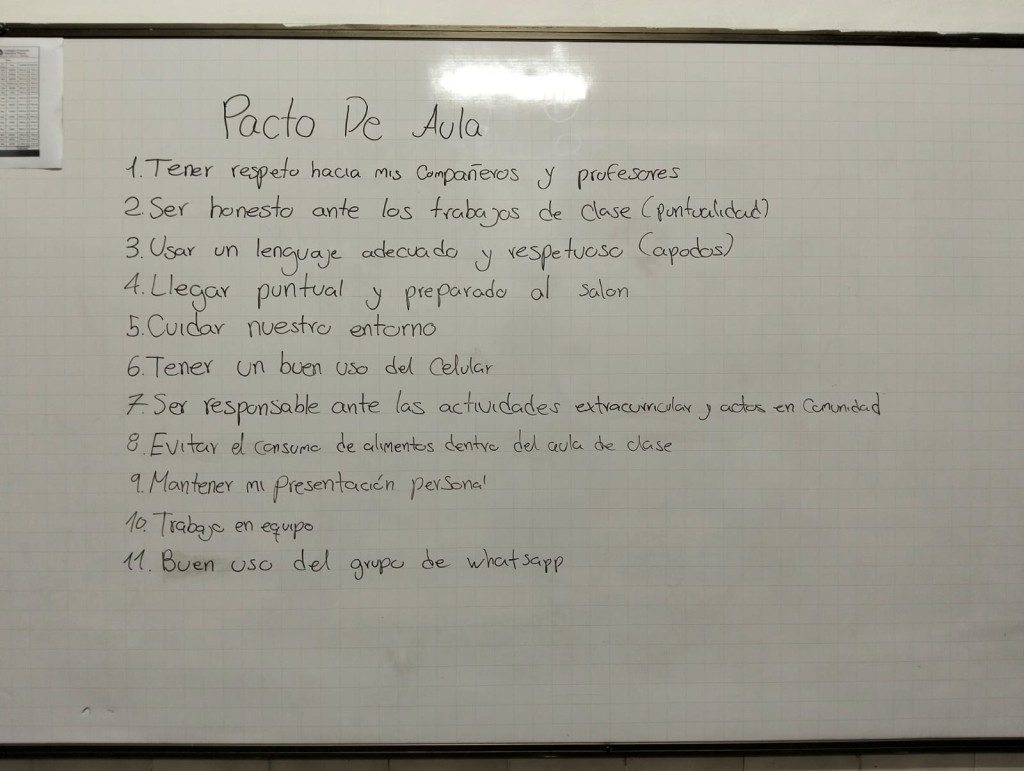 Pacto De Aula
1. Tener respeto hacia mis compañeros y profesores
2. Ser honesto ante los trabajos de clase (puntualidad)
3. Usar un lenguaje adecuado y respetuoso (apodos)
4. Llegar puntual y preparado al salon
5. Cuidar nuestro entorno
6. Tener un buen uso del Celular
7. Ser responsable ante las actividades extracurricular y actos en Comunidad
8. Evitar el consumo de alimentos dentro del aula de clase
9. Mantener mi presentación personal
10. Trabajo en equipo
11. Buen uso del grupo de whatsapp